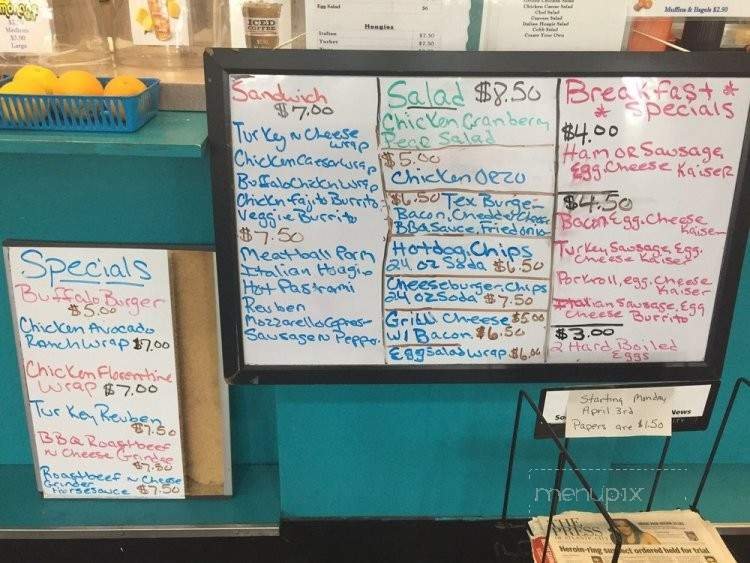 Medium
$3.50
Large
ICED
COFFEE
Egg Salad $6
Hoagies
Italian $7.50
Turkey $7.50
Chicken Caesar Salad
Chef Salad
Italian Hoagie Salad
Cobb Salad
Create Your Own
Muffins & Bagels $2.50
Sandwich
$7.00
Turkey N Cheese
Wrap
Chicken Caesar Wrap
Buffalo Chicken Wrap
Chicken Fajita Burrito
Veggie Burrito
$7.50
Meatball Parm
Italian Hoagie
Hot Pastrami
Reuben
Mozzarella Caprese
Sausage N Pepper
Salad $8.50
Chicken Cranberry
Pear Salad
$5.00
Chicken Orzo
$6.50 Tex Burger
Bacon, Cheddar Cheese
BBQ Sauce, Fried Onion
Hotdog, Chips
24 oz Soda $6.50
Cheeseburger, Chips
24 oz Soda $7.50
Grill Cheese $5.00
W/ Bacon $6.50
Egg Salad Wrap $6.00
Breakfast *
* Specials
$4.00
Ham OR Sausage
Egg. Cheese Kaiser
$4.50
Bacon. Egg. Cheese
Kaiser
Turkey Sausage, Egg.
Cheese Kaiser
Porkroll, egg. Cheese
Kaiser
Italian Sausage, Egg
Cheese Burrito
$3.00
2 Hard Boiled
Eggs
Specials
Buffalo Burger
$5.00
Chicken Avocado
Ranch Wrap $7.00
Chicken Florentine
Wrap $7.00
Turkey Reuben
$7.50
BBQ Roastbeef
N Cheese Grinder
$7.50
Roastbeef N Cheese
Grinder
Horsesauce $7.50
Starting Monday
April 3rd
Papers are $1.50
News
menupix
PRESS
Heroin-ring suspect ordered held for trial